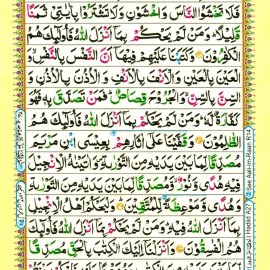 فَلَا تَخْشَوُا النَّاسَ وَاخْشَوْنِ وَلَا تَشْتَرُوْا بِاٰيٰتِيْ ثَمَنًا
قَلِيْلًا ؕ وَمَنْ لَّمْ يَحْكُمْ بِمَاۤ اَنْزَلَ اللّٰهُ فَاُولٰٓئِكَ هُمُ
الْكٰفِرُوْنَ وَكَتَبْنَا عَلَيْهِمْ فِيْهَاۤ اَنَّ النَّفْسَ بِالنَّفْسِ ۙ وَ
الْعَيْنَ بِالْعَيْنِ وَالْاَنْفَ بِالْاَنْفِ وَالْاُذُنَ بِالْاُذُنِ وَ
السِّنَّ بِالسِّنِّ ۙ وَالْجُرُوْحَ قِصَاصٌ ؕ فَمَنْ تَصَدَّقَ بِهٖ فَهُوَ
كَفَّارَةٌ لَّهٗ ؕ وَمَنْ لَّمْ يَحْكُمْ بِمَاۤ اَنْزَلَ اللّٰهُ فَاُولٰٓئِكَ هُمُ
الظّٰلِمُوْنَ وَقَفَّيْنَا عَلٰۤى اٰثَارِهِمْ بِعِيْسَى ابْنِ مَرْيَمَ
مُصَدِّقًا لِّمَا بَيْنَ يَدَيْهِ مِنَ التَّوْرٰىةِ ۪ وَاٰتَيْنٰهُ الْاِنْجِيْلَ
فِيْهِ هُدًى وَّنُوْرٌ ۙ وَّمُصَدِّقًا لِّمَا بَيْنَ يَدَيْهِ مِنَ التَّوْرٰىةِ
وَهُدًى وَّمَوْعِظَةً لِّلْمُتَّقِيْنَ وَلْيَحْكُمْ اَهْلُ الْاِنْجِيْلِ
بِمَاۤ اَنْزَلَ اللّٰهُ فِيْهِ ؕ وَمَنْ لَّمْ يَحْكُمْ بِمَاۤ اَنْزَلَ اللّٰهُ فَاُولٰٓئِكَ
هُمُ الْفٰسِقُوْنَ وَاَنْزَلْنَاۤ اِلَيْكَ الْكِتٰبَ بِالْحَقِّ مُصَدِّقًا
See Aal-i-Imran R14
Hadid A27